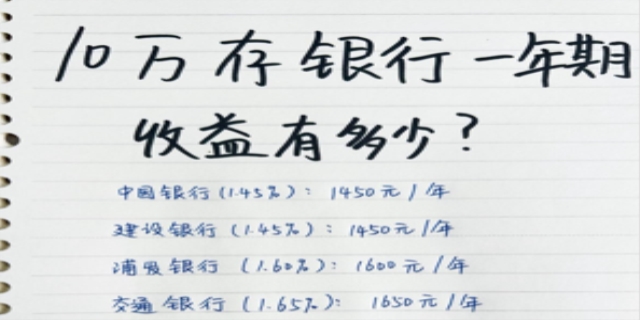 10万存银行一年期
收益有多少？
中国银行(1.45%)：1450元/年
建设银行(1.45%)：1450元/年
浦发银行(1.60%)：1600元/年
交通银行(1.65%)：1650元/年